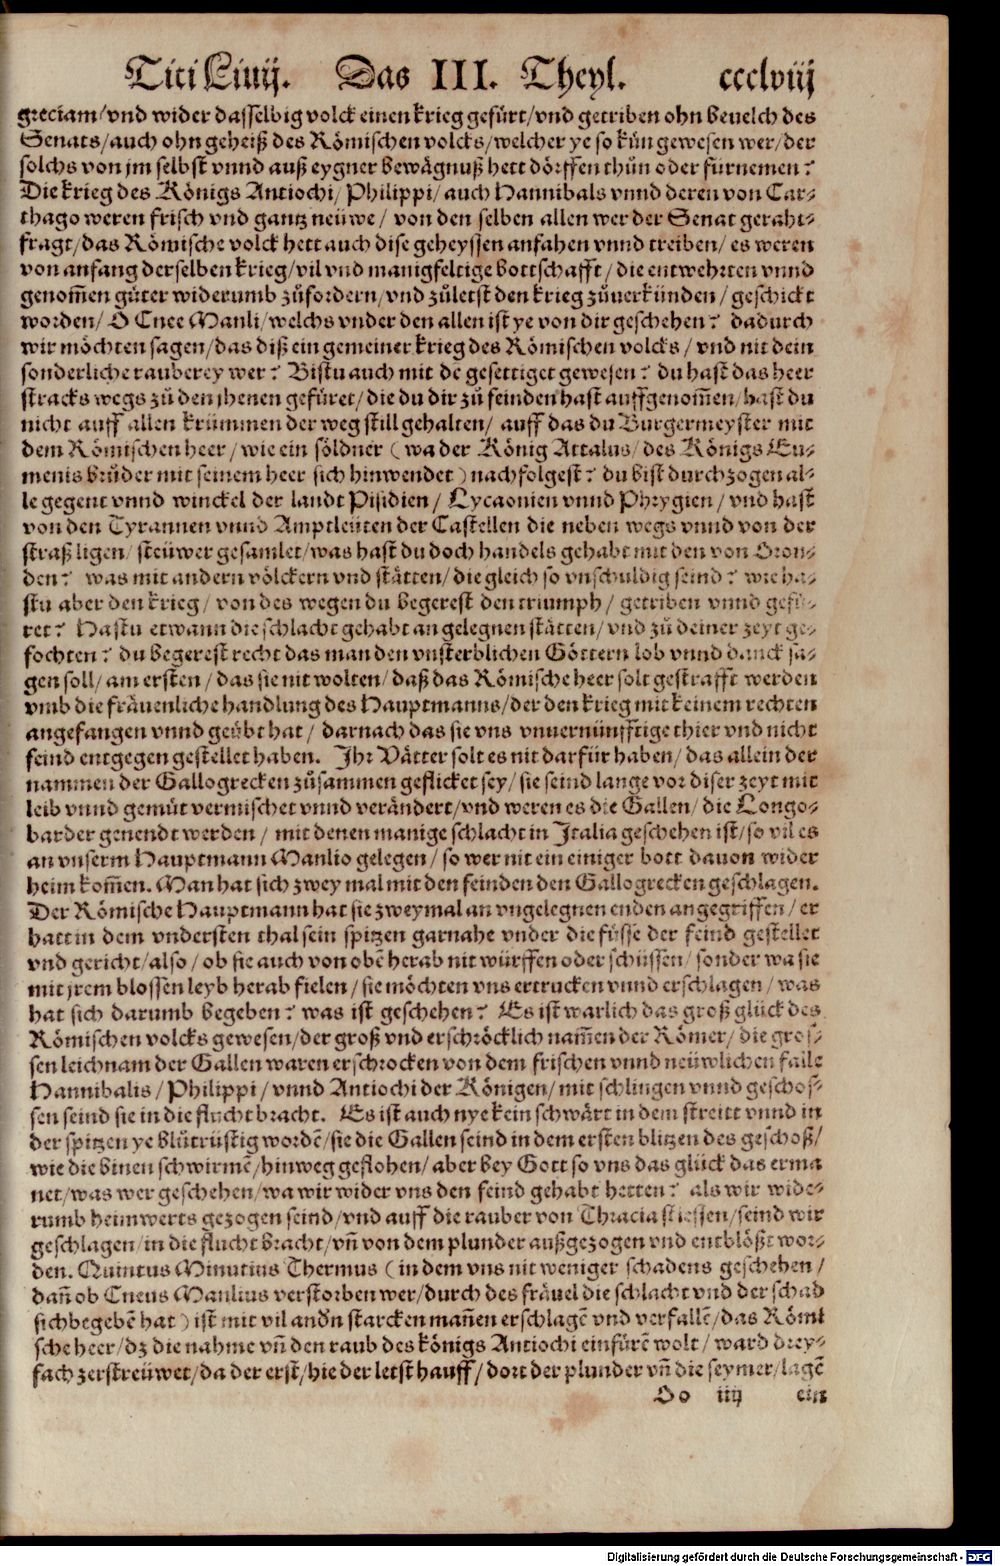 Titi Liuij. Das III. Theyl. ccclviij
greciam/vnd wider dasselbig volck einen krieg gefürt/vnd getriben ohn beuelch des
Senats/auch ohn geheiß des Römischen volcks/welcher ye so kün gewesen wer/der
solchs von jm selbst vnnd auß eygner bewägnuß hett dörffen thůn oder fürnemen?
Die krieg des Königs Antiochi/ Philippi/ auch Hannibals vnnd deren von Car-
thago weren frisch vnd gantz neüwe/ von den selben allen wer der Senat geraht-
fragt/das Römische volck hett auch dise geheyssen anfahen vnnd treiben/ es weren
von anfang derselben krieg/vil vnd manigfeltige bottschafft/die entwehrten vnnd
genom̃en güter widerumb zůfordern/vnd zůletst den krieg zůuerkünden/geschickt
worden/ O Cnee Manli/welchs vnder den allen ist ye von dir geschehen? dadurch
wir möchten sagen/das diß ein gemeiner krieg des Römischen volcks/ vnd nit dein
sonderliche rauberey wer? Bistu auch mit dē gesettiget gewesen? du hast das heer
stracks wegs zů den jhenen gefüret/die du dir zů feinden hast auffgenom̃en/hast du
nicht auff allen krümmen der weg still gehalten/ auff das du Burgermeyster mit
dem Römischen heer/wie ein söldner (wa der König Attalus/des Königs Eu-
menis brůder mit seinem heer sich hinwendet) nachfolgest? du bist durchzogen al-
le gegent vnnd winckel der landt Pisidien/ Lycaonien vnnd Phrygien/ vnd hast
von den Tyrannen vnnd Amptleüten der Castellen die neben wegs vnnd von der
straß ligen/ steüwer gesamlet/was hast du doch handels gehabt mit den von Oron-
den? was mit andern völckern vnd stätten/die gleich so vnschuldig seind? wie ha-
stu aber den krieg/ von des wegen du begerest den triumph/ getriben vnnd gefü-
ret? Hastu etwann die schlacht gehabt an gelegnen stätten/ vnd zů deiner zeyt ge-
fochten? du begerest recht das man den vnsterblichen Göttern lob vnnd danck sa-
gen soll/am ersten/das sie nit wolten/daß das Römische heer solt gestrafft werden
vmb die fräuenliche handlung des Hauptmanns/der den krieg mit keinem rechten
angefangen vnnd geübt hat/ darnach das sie vns vnuernünfftige thier vnd nicht
feind entgegen gestellet haben. Ihr Vätter solt es nit darfür haben/ das allein der
nammen der Gallogrecken zůsammen geflicket sey/sie seind lange vor diser zeyt mit
leib vnnd gemüt vermischet vnnd verändert/vnd weren es die Gallen/die Longo-
barder genendt werden/ mit denen manige schlacht in Italia geschehen ist/so vil es
an vnserm Hauptmann Manlio gelegen/so wer nit ein einiger bott dauon wider
heim kom̃en. Man hat sich zwey mal mit den feinden den Gallogrecken geschlagen.
Der Römische Hauptmann hat sie zweymal an vngelegnen enden angegriffen/er
hatt in dem vndersten thal sein spitzen garnahe vnder die füsse der feind gestellet
vnd gericht/also/ob sie auch von obē herab nit würffen oder schüssen/sonder wa sie
mit jrem blossen leyb herab fielen/sie möchten vns ertrucken vnnd erschlagen/was
hat sich darumb begeben? was ist geschehen? Es ist warlich das groß glück des
Römischen volcks gewesen/der groß vnd erschröcklich nam̃en der Römer/die gros-
sen leichnam der Gallen waren erschrocken von dem frischen vnnd neüwlichen faile
Hannibalis/ Philippi/ vnnd Antiochi der Königen/mit schlingen vnnd geschos-
sen seind sie in die flucht bracht. Es ist auch nye kein schwärt in dem streitt vnnd in
der spitzen ye blůtrüstig wordē/sie die Gallen seind in dem ersten blitzen des geschoß/
wie die binen schwirmē/hinweg geflohen/aber bey Gott so vns das glück das erma
net/was wer geschehen/wa wir wider vns den feind gehabt hetten? als wir wide-
rumb heimwerts gezogen seind/vnd auff die rauber von Thracia stiessen/seind wir
geschlagen/in die flucht bracht/vñ von dem plunder außgezogen vnd entblößt wor-
den. Quintus Minutius Thermus (in dem vns nit weniger schadens geschehen/
dañ ob Cneus Manlius verstorben wer/durch des fräuel die schlacht vnd der schad
sich begebē hat) ist mit vil andn̄ starcken mañen erschlagē vnd verfallē/das Römi
sche heer/dz die nahme vñ den raub des königs Antiochi einfürē wolt/ ward drey-
fach zerstreüwet/da der erst/hie der letst hauff/dort der plunder vñ die seymer/lagē
Oo iiij ein
Digitalisierung gefördert durch die Deutsche Forschungsgemeinschaft - DFG